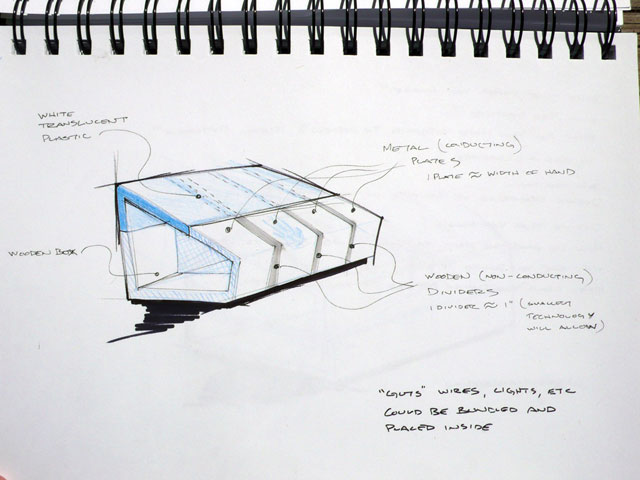 WHITE
TRANSLUCENT
PLASTIC
METAL (CONDUCTING)
PLATES
1 PLATE ≈ WIDTH OF HAND
WOODEN BOX
WOODEN (NON-CONDUCTING)
DIVIDERS
1 DIVIDER ≈ 1" (SMALLEST
TECHNOLOGY
WILL ALLOW)
"GUTS" WIRES, LIGHTS, ETC
COULD BE BUNDLED AND
PLACED INSIDE